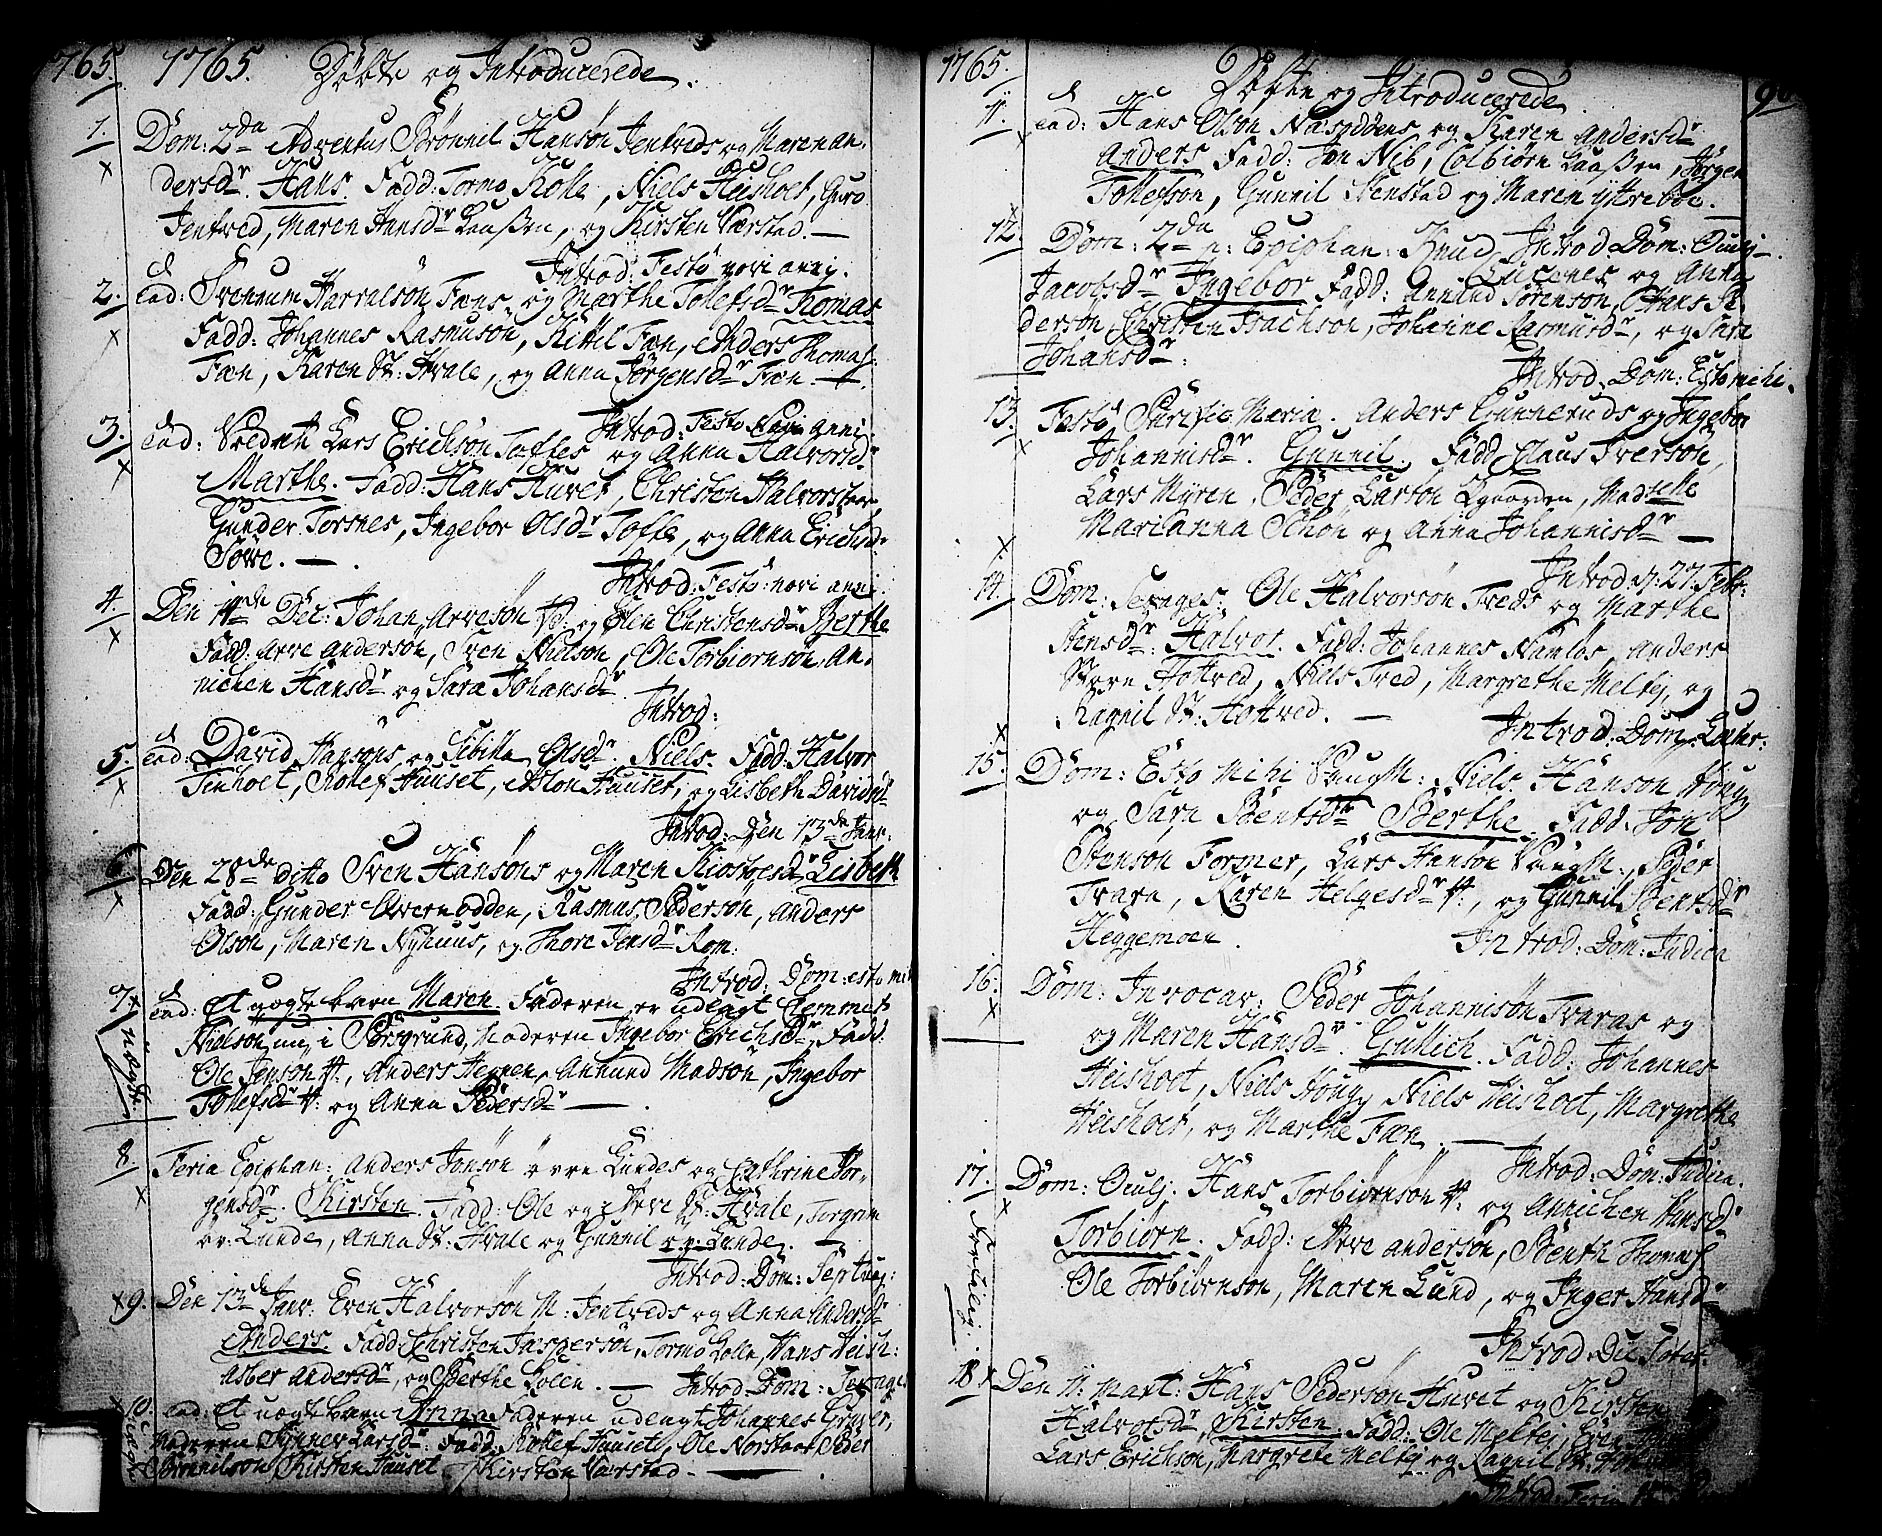 1765. 1765. Döbte og Introducerede.
1. Dom: 2da Adventus Brönnil Hansön Jentveds og Maren An-
dersdr. Hans. Fadd: Tormo Kolle, Niels Heishoet, Guro
Jentved, Maren Hansdr Laaßen, og Kirsten Værstad. —
Introd: Festo novi anni.
2. Ead: Svennum Harralsön Fæns, og Marthe Tollefsdr Thomas
Fadd: Johannes Rasmusön, Kittil Fæn, Anders Thomas:
Fæn, Karen St: Hvale, og Anna Jörgensdr Fæn —.
Introd: Festo Novi anni.
3. Ead: Lars Erichsön Toffes og Anna Halvorsd:
Marthe. Fadd: Hans Huvet, Christen Halvorsön,
Gunder Torsnes, Ingebor Olsdr Toffe, og Anna Erichsd:
Sove. —.
Introd: Festo: novi anni.
4. Den 14de Dec: Johan Arvesön og Elin Christensdr Berthe
Fadd: Arve Andersön, Sven Nielson, Ole Torbiörnsön, An-
nichen Hansdr og Sara Johansdr.
Introd:
5. Ead: David Hansöns og Sibilla Olsdr. Niels. Fadd: Halvor
Tinhoet, Rollef Hauset, Aslon Hauset, og Lisbeth Davidsd:
Introd: Den 13de Janr.
6. Den 28de ditto Sven Hansöns og Maren Lisbeth
Fadd: Gunder Overnödden, Rasmus Pederson, Anders
Olson, Maren Nyhuus, og Thore Jensdr Rom.
Introd: Dom: esto mihi
7. Ead: Et uægte barn Maren. Faderen er udlagt Clemmet
Nielson nu i Porsgrund, Moderen Ingebor Erichsdr, Fadd:
Ole Jenson, Anders Heyen, Annund Madsön, Ingebor
Tollefsdr og Anna Pedersdr —.
uægte.
8. Feria Epiphan: Anders Jonsön övre Lundes og Cathrine Jör-
gensdr. Kirsten. Fadd: Ole og Arve St: Hvale, Torgrim
öv: Lunde, Anna St: Hvale og Gunnil öv: Lunde. —
Introd: Dom: Septuag:
9. Den 13de Janr: Even Halvorsön N: Jentveds og Anna Andersd:
Anders. Fadd: Christen Jaspersön, Tormo Kolle, Hans Heish:
Asber Andersdr, og Berthe Foeen. — Introd: Dom: Sexages
10. Ead: Et uægte barn Anne Faderen udlagt Johannes Gruver,
Moderen Synnev Larsdr: Fadd: Rollef Hauset, Ole Norstaae Peder
Brynnilson Kirsten Hauset Kirsten Værstad. —.
1765. Döbte og Introducerede 90
11. Ead: Hans Olson Næsgdöens og Karen Andersdr
Anders Fadd: Jon Nib, Colbiörn Laaßen, Jörgen
Tollefson, Gunnil Stenstad og Maren Ystreböe. —
12. Dom: 2da p: Epiphan: Knud Introd: Dom: Oculj —.
og Anna
Jacobsdr Ingebor Fadd: Annund Sörensön, Hans An-
derson, Christen Isachson, Johanne Rasmusdr, og Sara
Johansdr:
Introd: Dom: Esto mihi.
13. Festo Purific Mariæ. Anders Gunneruds og Ingebor
Johannisdr. Gunnil. Fadd: Claus Iversön,
Lars Myren, Peder Larson Madselle
Marianna Schon og Anna Johannisdr —
Introd: d: 27. Febr:
14. Dom: Sexages: Ole Halvorsön Treds og Marthe
Stensdr. Halvor. Fadd: Johannes Namlos, Anders
Horn Hottved, Niels Tred, Margrethe Meltej, og
Ragnil St: Hottved. —
Introd: Dom: Lætar:
15. Dom: Esto mihi Niels Hanson Houg
og Sara Bentsdr Berthe. Fadd: Jon
Stenson Former, Lars Hanson Peder
Tvara, Karen Helgesdr, og Gunnil Bentsdr
Heggemoen. Introd: Dom: Judica
16. Dom: Invocav: Peder Johannisön Tvaras og
og Maren Hansdr. Gullich. Fadd: Johannes
Heishoet, Niels Houg, Niels Heishoet, Margrethe
Heishoet, og Marthe Fæn. —
Introd: Dom: Judica.
17. Dom: Oculj. Hans Torbiörnsön og Annichen Hansd:
Torbiörn. Fadd: Arve Andersön, Benth Thomas:
Ole Torbiörnson, Maren Lund, og Inger Hansd:
Introd: Die
18. Den 11. Mart: Hans Pedersön Huvet og Kirsten
Halvorsdr, Kirsten. Fadd: Ole Meltej, Even
Lars Erichson, Margrete Meltej og Ragnil St:
Introd: Feria